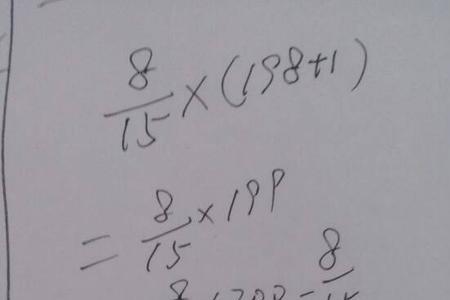 8/15 × (198+1)
= 8/15 × 199